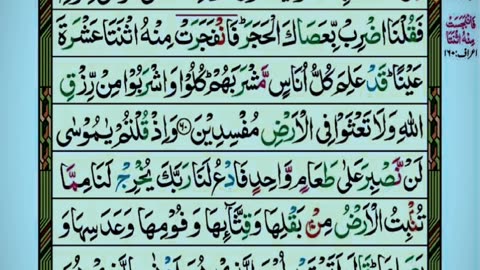 فَقُلْنَا اضْرِبْ بِّعَصَاكَ الْحَجَرَ ؕ فَانْفَجَرَتْ مِنْهُ اثْنَتَا عَشْرَةَ
عَیْنًا ؕ قَدْ عَلِمَ كُلُّ اُنَاسٍ مَّشْرَبَهُمْ ؕ كُلُوْا وَاشْرَبُوْا مِنْ رِّزْقِ
اللّٰهِ وَلَا تَعْثَوْا فِی الْاَرْضِ مُفْسِدِیْنَ ﴿۶۰﴾ وَاِذْ قُلْتُمْ یٰمُوْسٰی
لَنْ نَّصْبِرَ عَلٰی طَعَامٍ وَّاحِدٍ فَادْعُ لَنَا رَبَّكَ یُخْرِجْ لَنَا مِمَّا
تُنْۢبِتُ الْاَرْضُ مِنْۢ بَقْلِهَا وَقِثَّآىِٕهَا وَفُوْمِهَا وَعَدَسِهَا وَ
فَانْۢبَجَسَتْ
مِنْهُ اثْنَتَا
اعراف: ۱۶۰